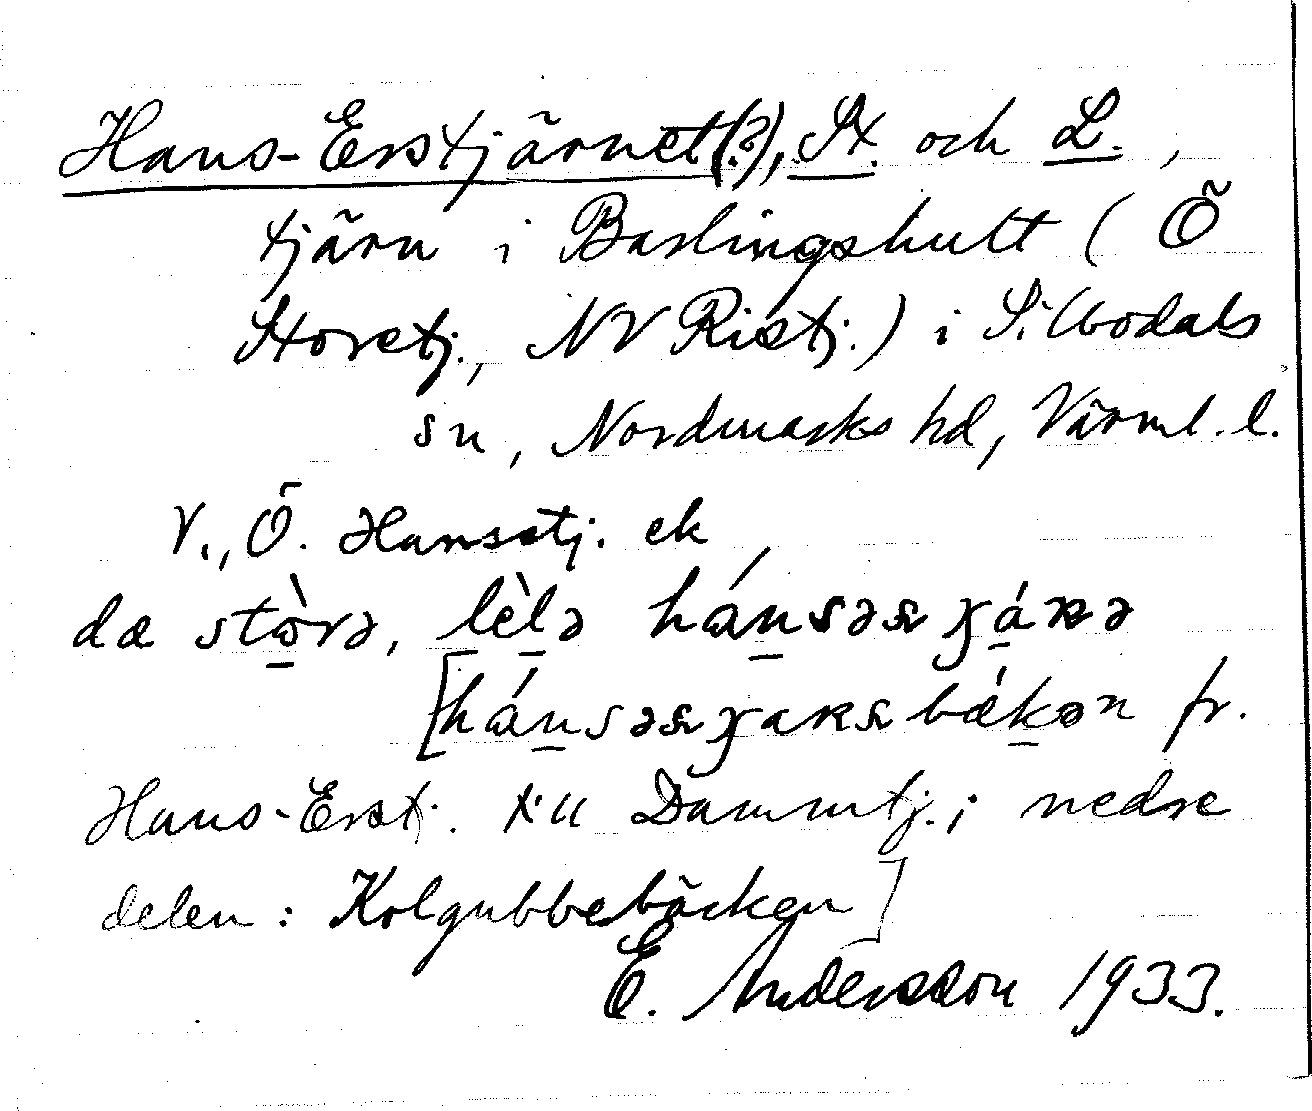 Hans-Erstjärnet(?), St. och L.,
tjärn i Barlingshult (Ö
Storetj., NV Ristj.) i Silbodals
sn, Nordmarks hd, Värml. l.
V., Ö. Hansetj. ek
dæ stòrə, lèlə hánsəs
[hánsəs fr.
Hans-Erstj. till Dammtj.; nedre
delen: Kolgubbebäcken]
E. Andersson 1933.